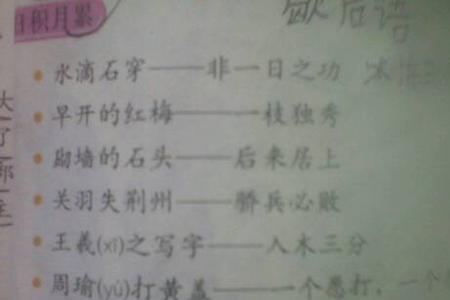 日积月累
歇后语
水滴石穿——非一日之功
早开的红梅——一枝独秀
砌墙的石头——后来居上
关羽失荆州——骄兵必败
王羲(xī)之写字——入木三分
周瑜(yú)打黄盖——一个愿打，一个